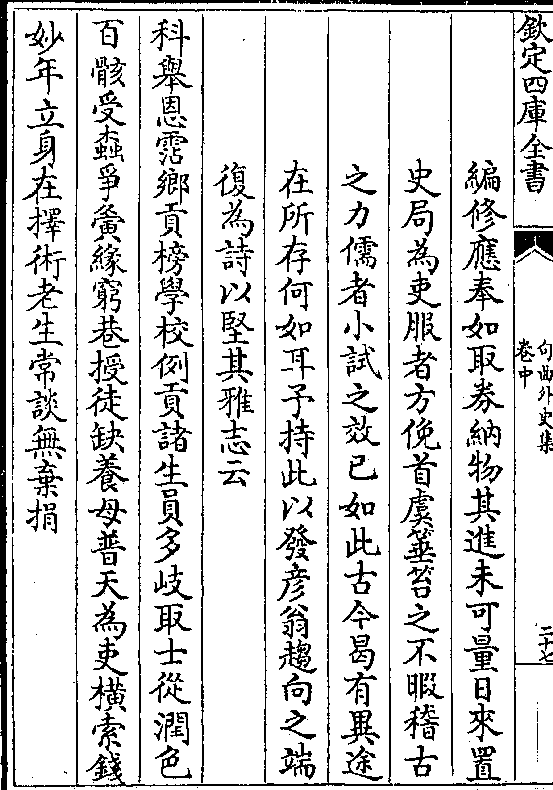 欽定四庫全書
句曲外史集
卷中
二十七
編修應奉如取券納物其進未可量日來置
史局為吏服者方俛首虞箠笞之不暇稽古
之力儒者小試之效已如此古今曷有異途
在所存何如耳予持此以發彥翁趨向之端
復為詩以堅其雅志云
科舉恩霑鄉貢榜學校例貢諸生員多岐取士從潤色
百骸受蝨爭夤緣窮巷授徒缺養母普天為吏橫索錢
妙年立身在擇術老生常談無棄捐